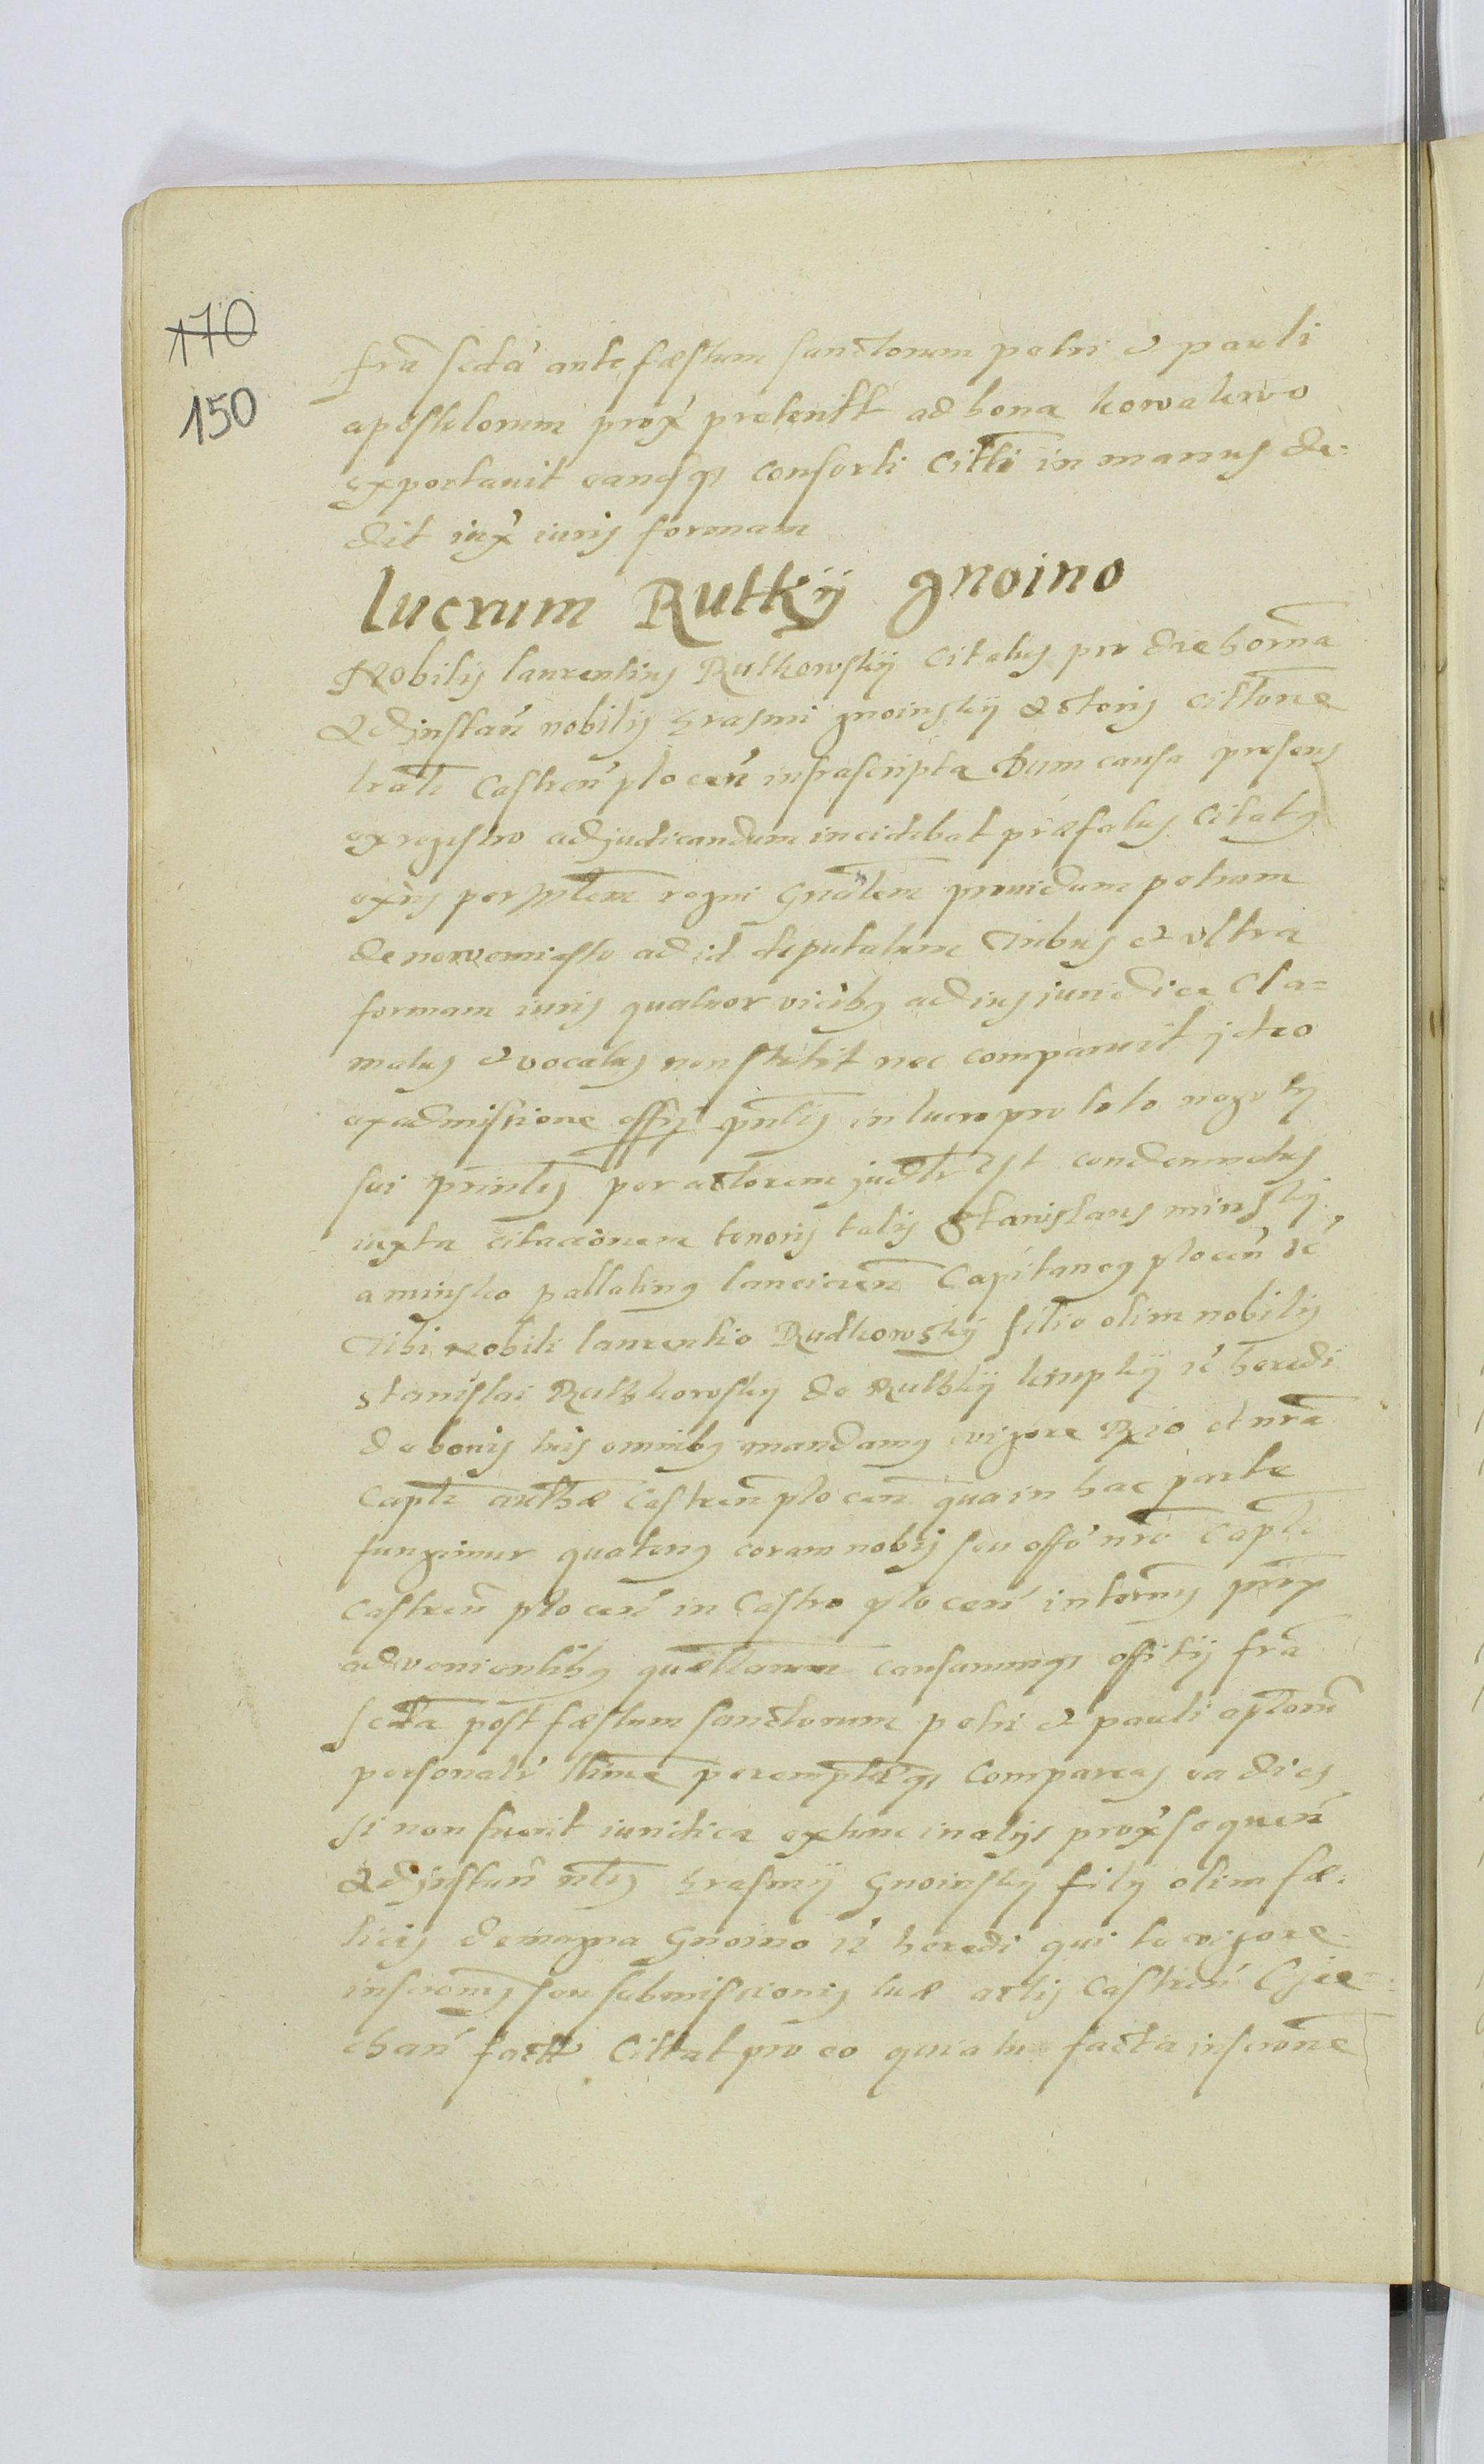 170
150
fra scda ante fæstum sanctorum petri et pauli
apostolorum prox pretentt ad bona kowalewo
exportauit eandsq consorti Citti in manus de=
dit iux iuris formam
lucrum Rutkÿ gnoino
Nobilis laurentius Rutkowskÿ Citatus pro die horna
Ad instan nobilis Erasmi gnoinskÿ actoris cittone
trale Castren plocen infrascripta Dum causa presens
ex regestro adjudicandum incidebat præfatus Citatus
per mlem regni Gnalem prouidum petrum
de nowemiasto ad id deputatum tribus et ultra
formam iuris quatuor vicibus ad ius juridice Cla=
matus et vocatus non stetit nec comparuit jdeo
ex admissione offÿ pntis in lucro pro toto negotÿ
sui prinles per actorem judlr est condemnatus
iuxta citacionem tenoris talis Stanislaus minskÿ
a minsko pallatinus lancicien Capitaneus plocen ić
Tibi Nobili laurentio Rudkowskÿ filio olim nobilis
Stanislai Rutkkowsky de Rutkkÿ ić heredi
de bonis tuis omnibus mandamus vigore Rgio et nra
Capli authæ Castren plocen qua in hac parte
fungimur quatenus coram nobis seu offo nro Capli
Castren plocen in Castro plocen in termis
aduenientibus quællarum causarumq offitÿ fra
scda post fæstum sanctorum petri et pauli aplorum
personalr ttime peremptieq Compareas ea dies
si non fuerit iuridica extunc in alijs prox sequen
Ad instan nlis Erasmÿ Gnoinskÿ filÿ olim fæ=
licis de magna Gnoino ić heredi qui te vigore
inscronis seu submissionis tuæ actis Castren Cie=
chan factt Cittat pro eo quia tu facta inscrone